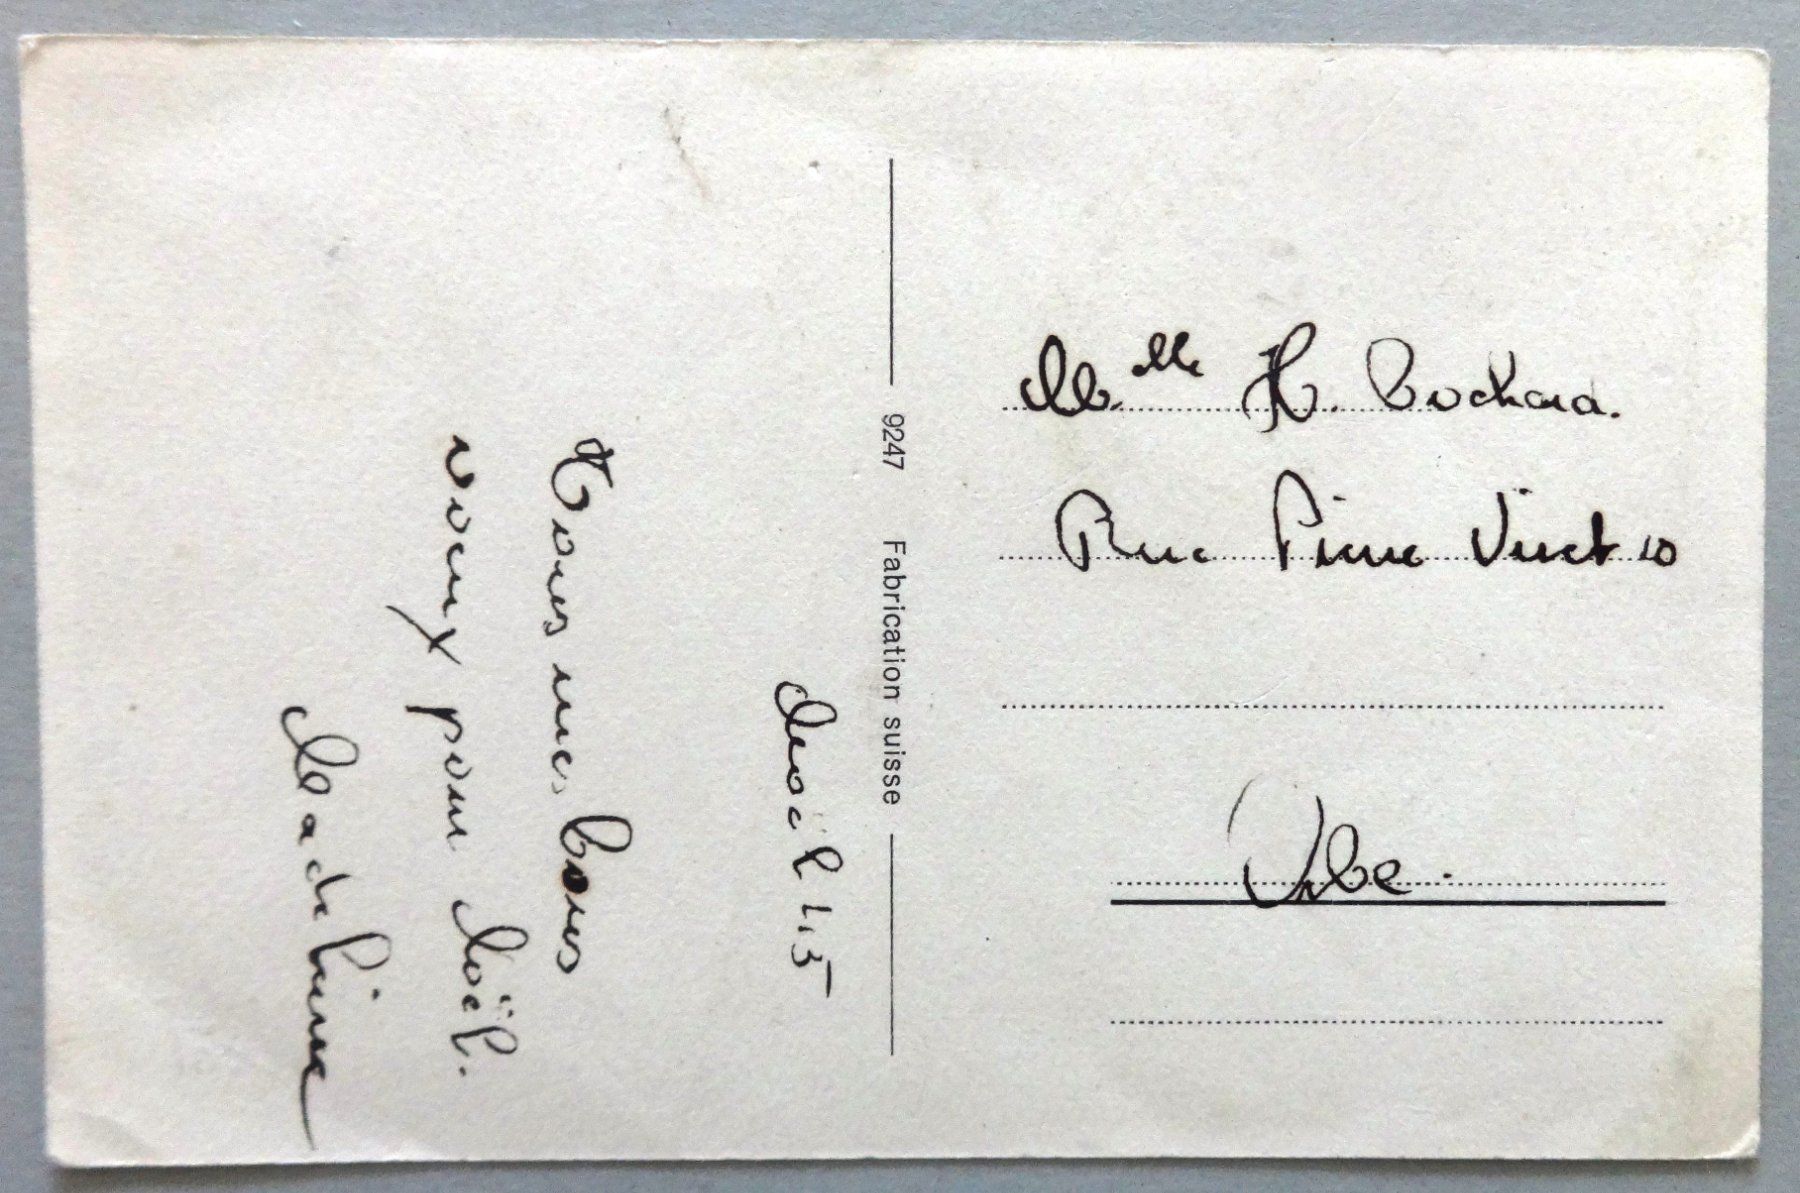 Noël 45
Tous mes bons
voeux pour Noël.
Madeleine
9247 Fabrication suisse
Melle H.
Rue Pierre Viret 10
Orbe.